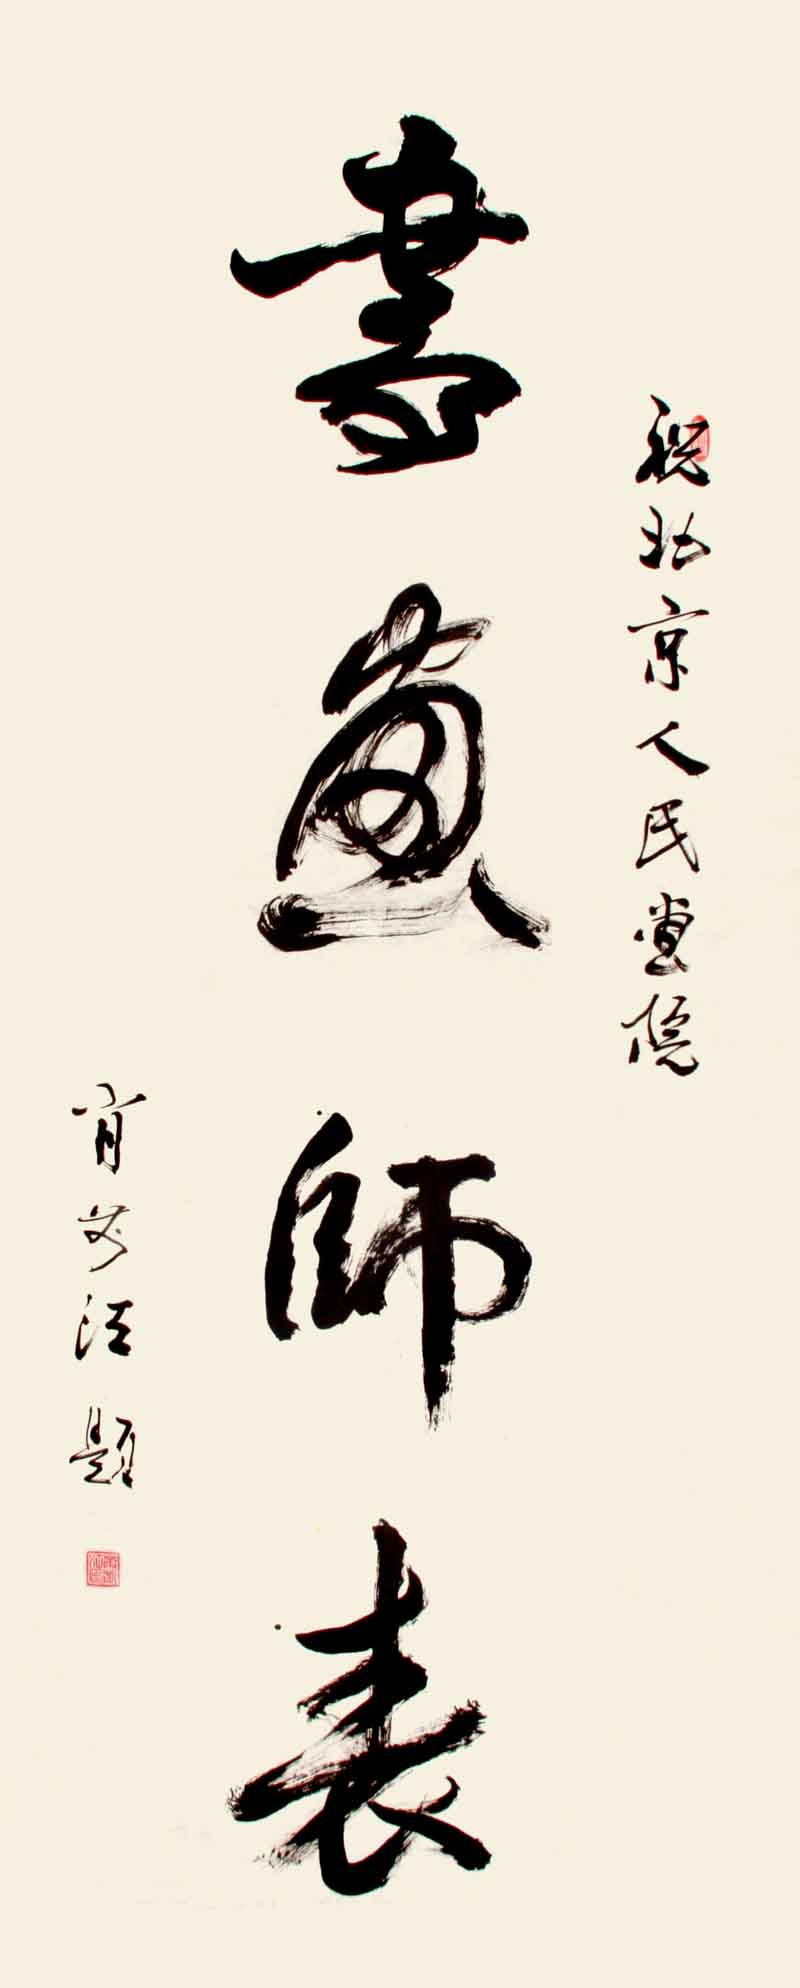 祝北京人民畫院
書畫師表
肖 題